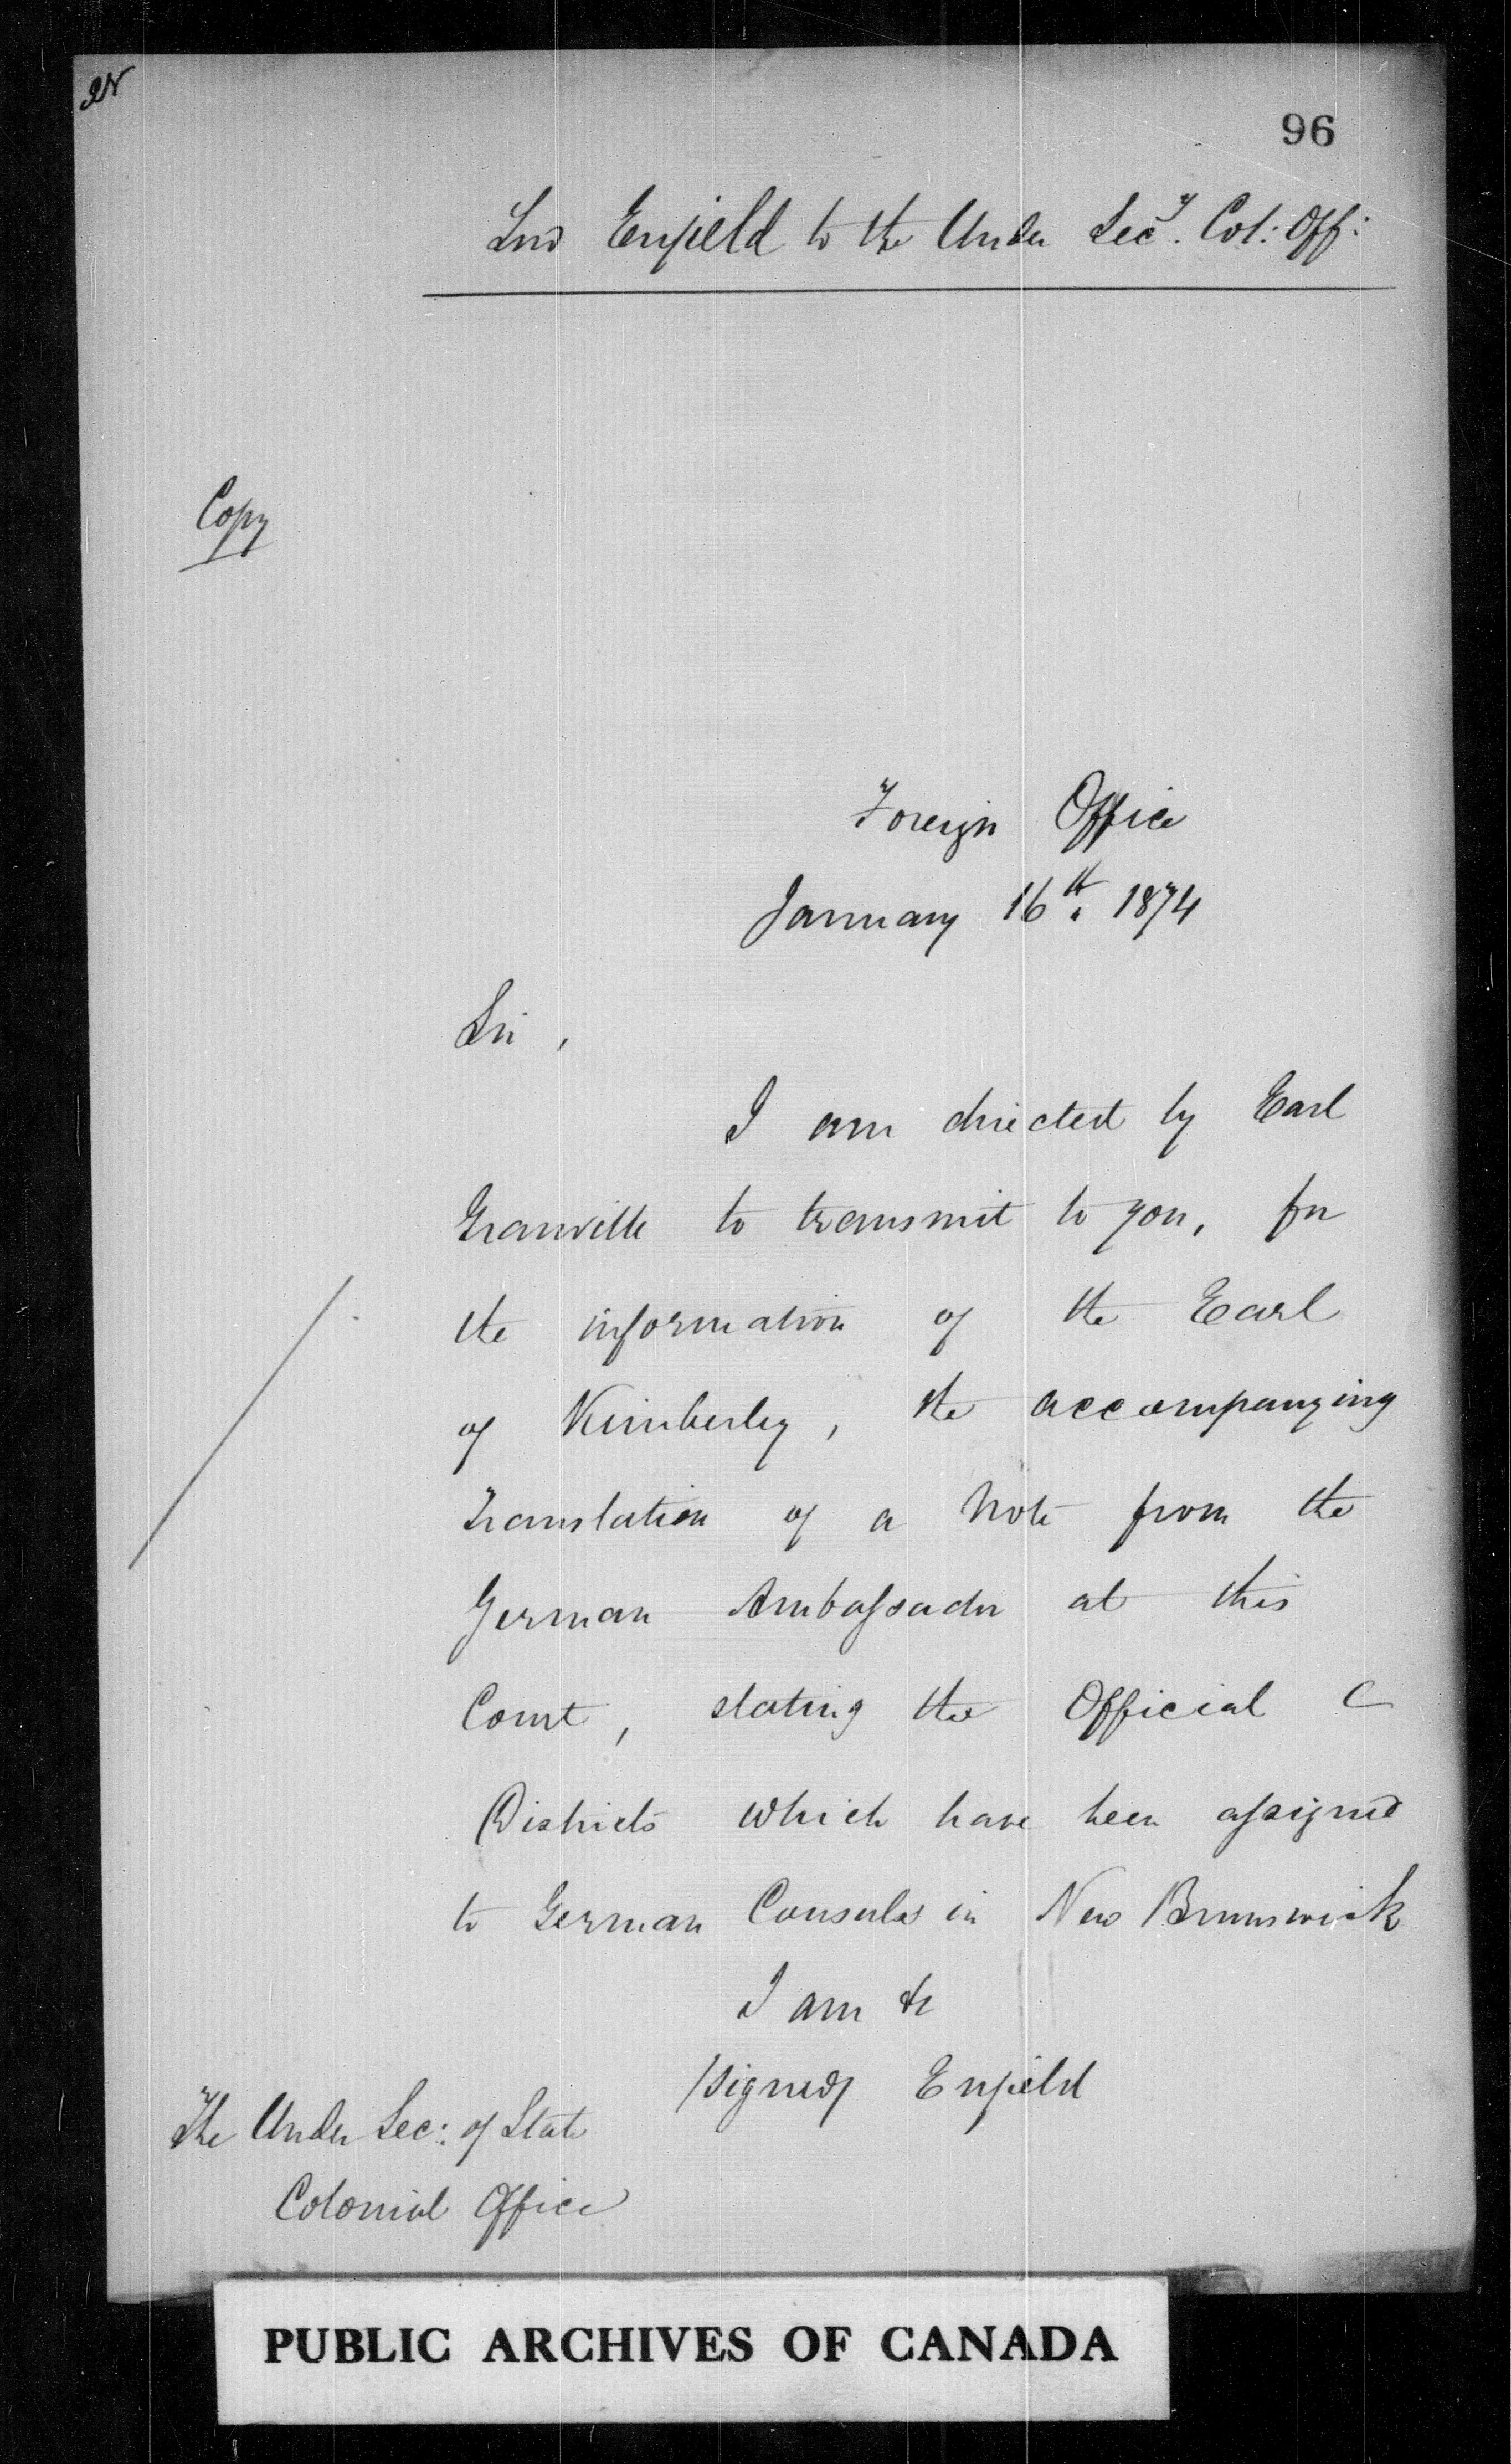 96
Lord Enfield to the Under Secy. Col: Off:
Copy
Foreign Office
January 16th. 1874
Sir,
I am directed by Earl
Granville to transmit to you, for
the information of the Earl
of Kimberley, the accompanying
Translation of a Note from the
German Ambassador at this
Court, stating the Official
Districts which have been assigned
to German Consuls in New Brunswick
I am &c
/signed/ Enfield
The Under Sec: of State
Colonial Office
PUBLIC ARCHIVES OF CANADA